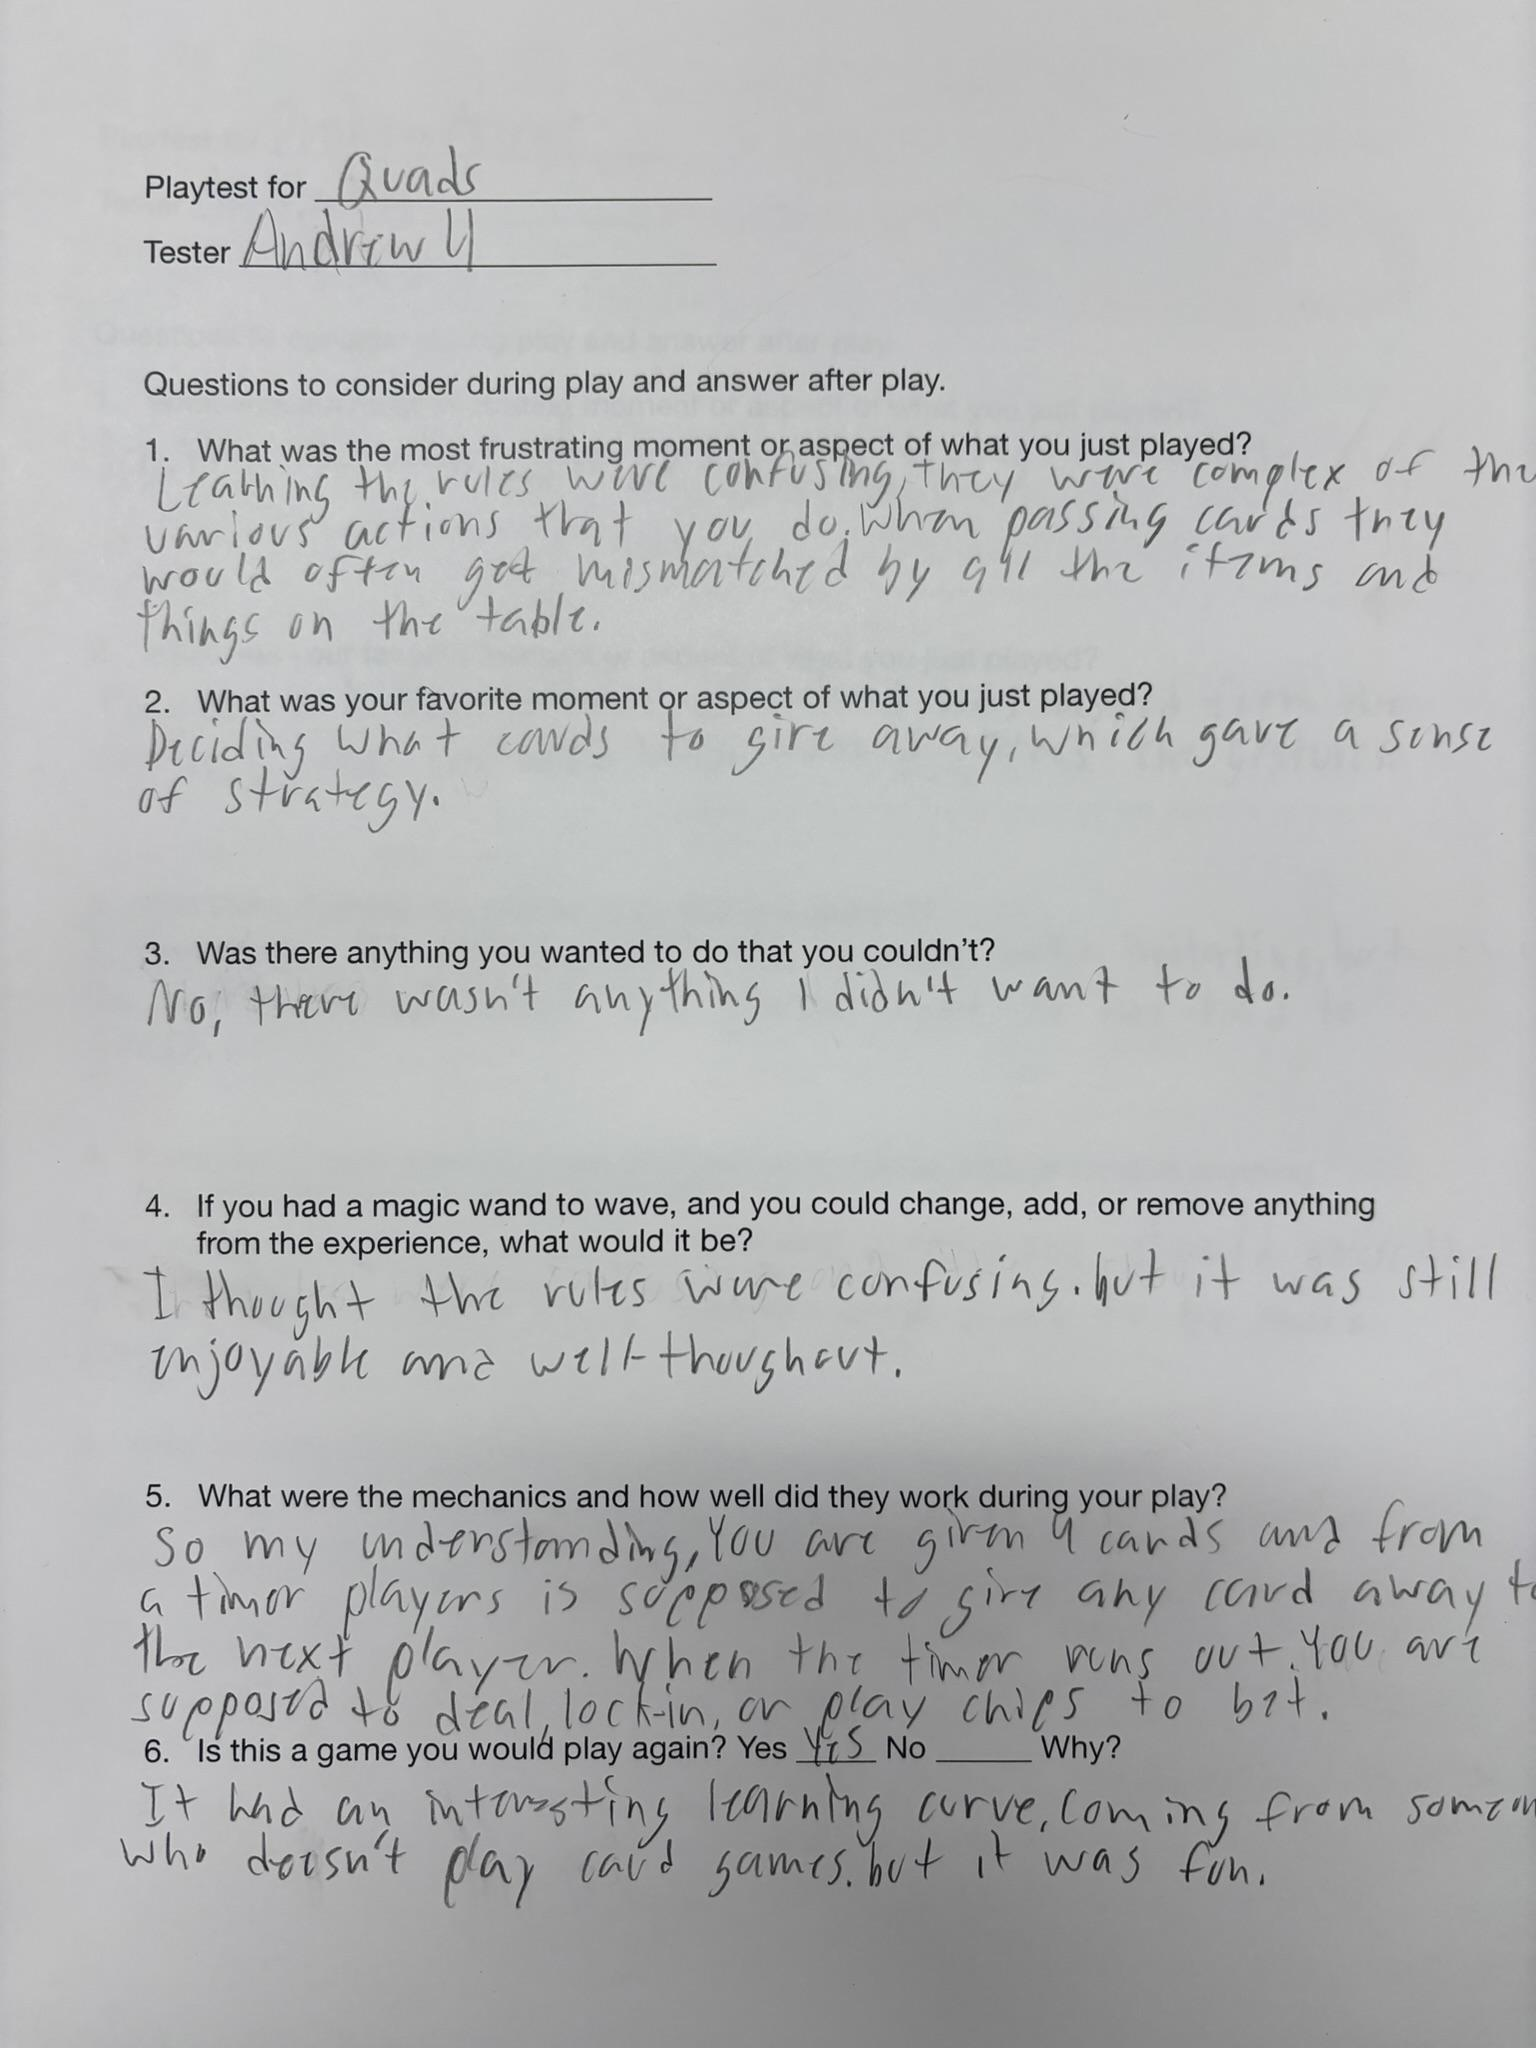 Playtest for Quads
Tester Andrew Y
Questions to consider during play and answer after play.
1. What was the most frustrating moment or aspect of what you just played?
Learning the rules were confusing, they were complex of the
various actions that you do. When passing cards they
would often get mismatched by all the items and
things on the table.
2. What was your favorite moment or aspect of what you just played?
Deciding what cards to give away, which gave a sense
of strategy.
3. Was there anything you wanted to do that you couldn't?
No, there wasn't anything I didn't want to do.
4. If you had a magic wand to wave, and you could change, add, or remove anything
from the experience, what would it be?
I thought the rules were confusing. but it was still
enjoyable and well-thoughout.
5. What were the mechanics and how well did they work during your play?
So my understanding, You are given 4 cards and from
a timor players is supposed to give any card away to
the next player. When the timer runs out. You are
supposed to deal, lock-in, or play chips to bet.
6. Is this a game you would play again? Yes Yes No ______ Why?
It had an interesting learning curve, coming from someon
who doesn't play card games. but it was fun.